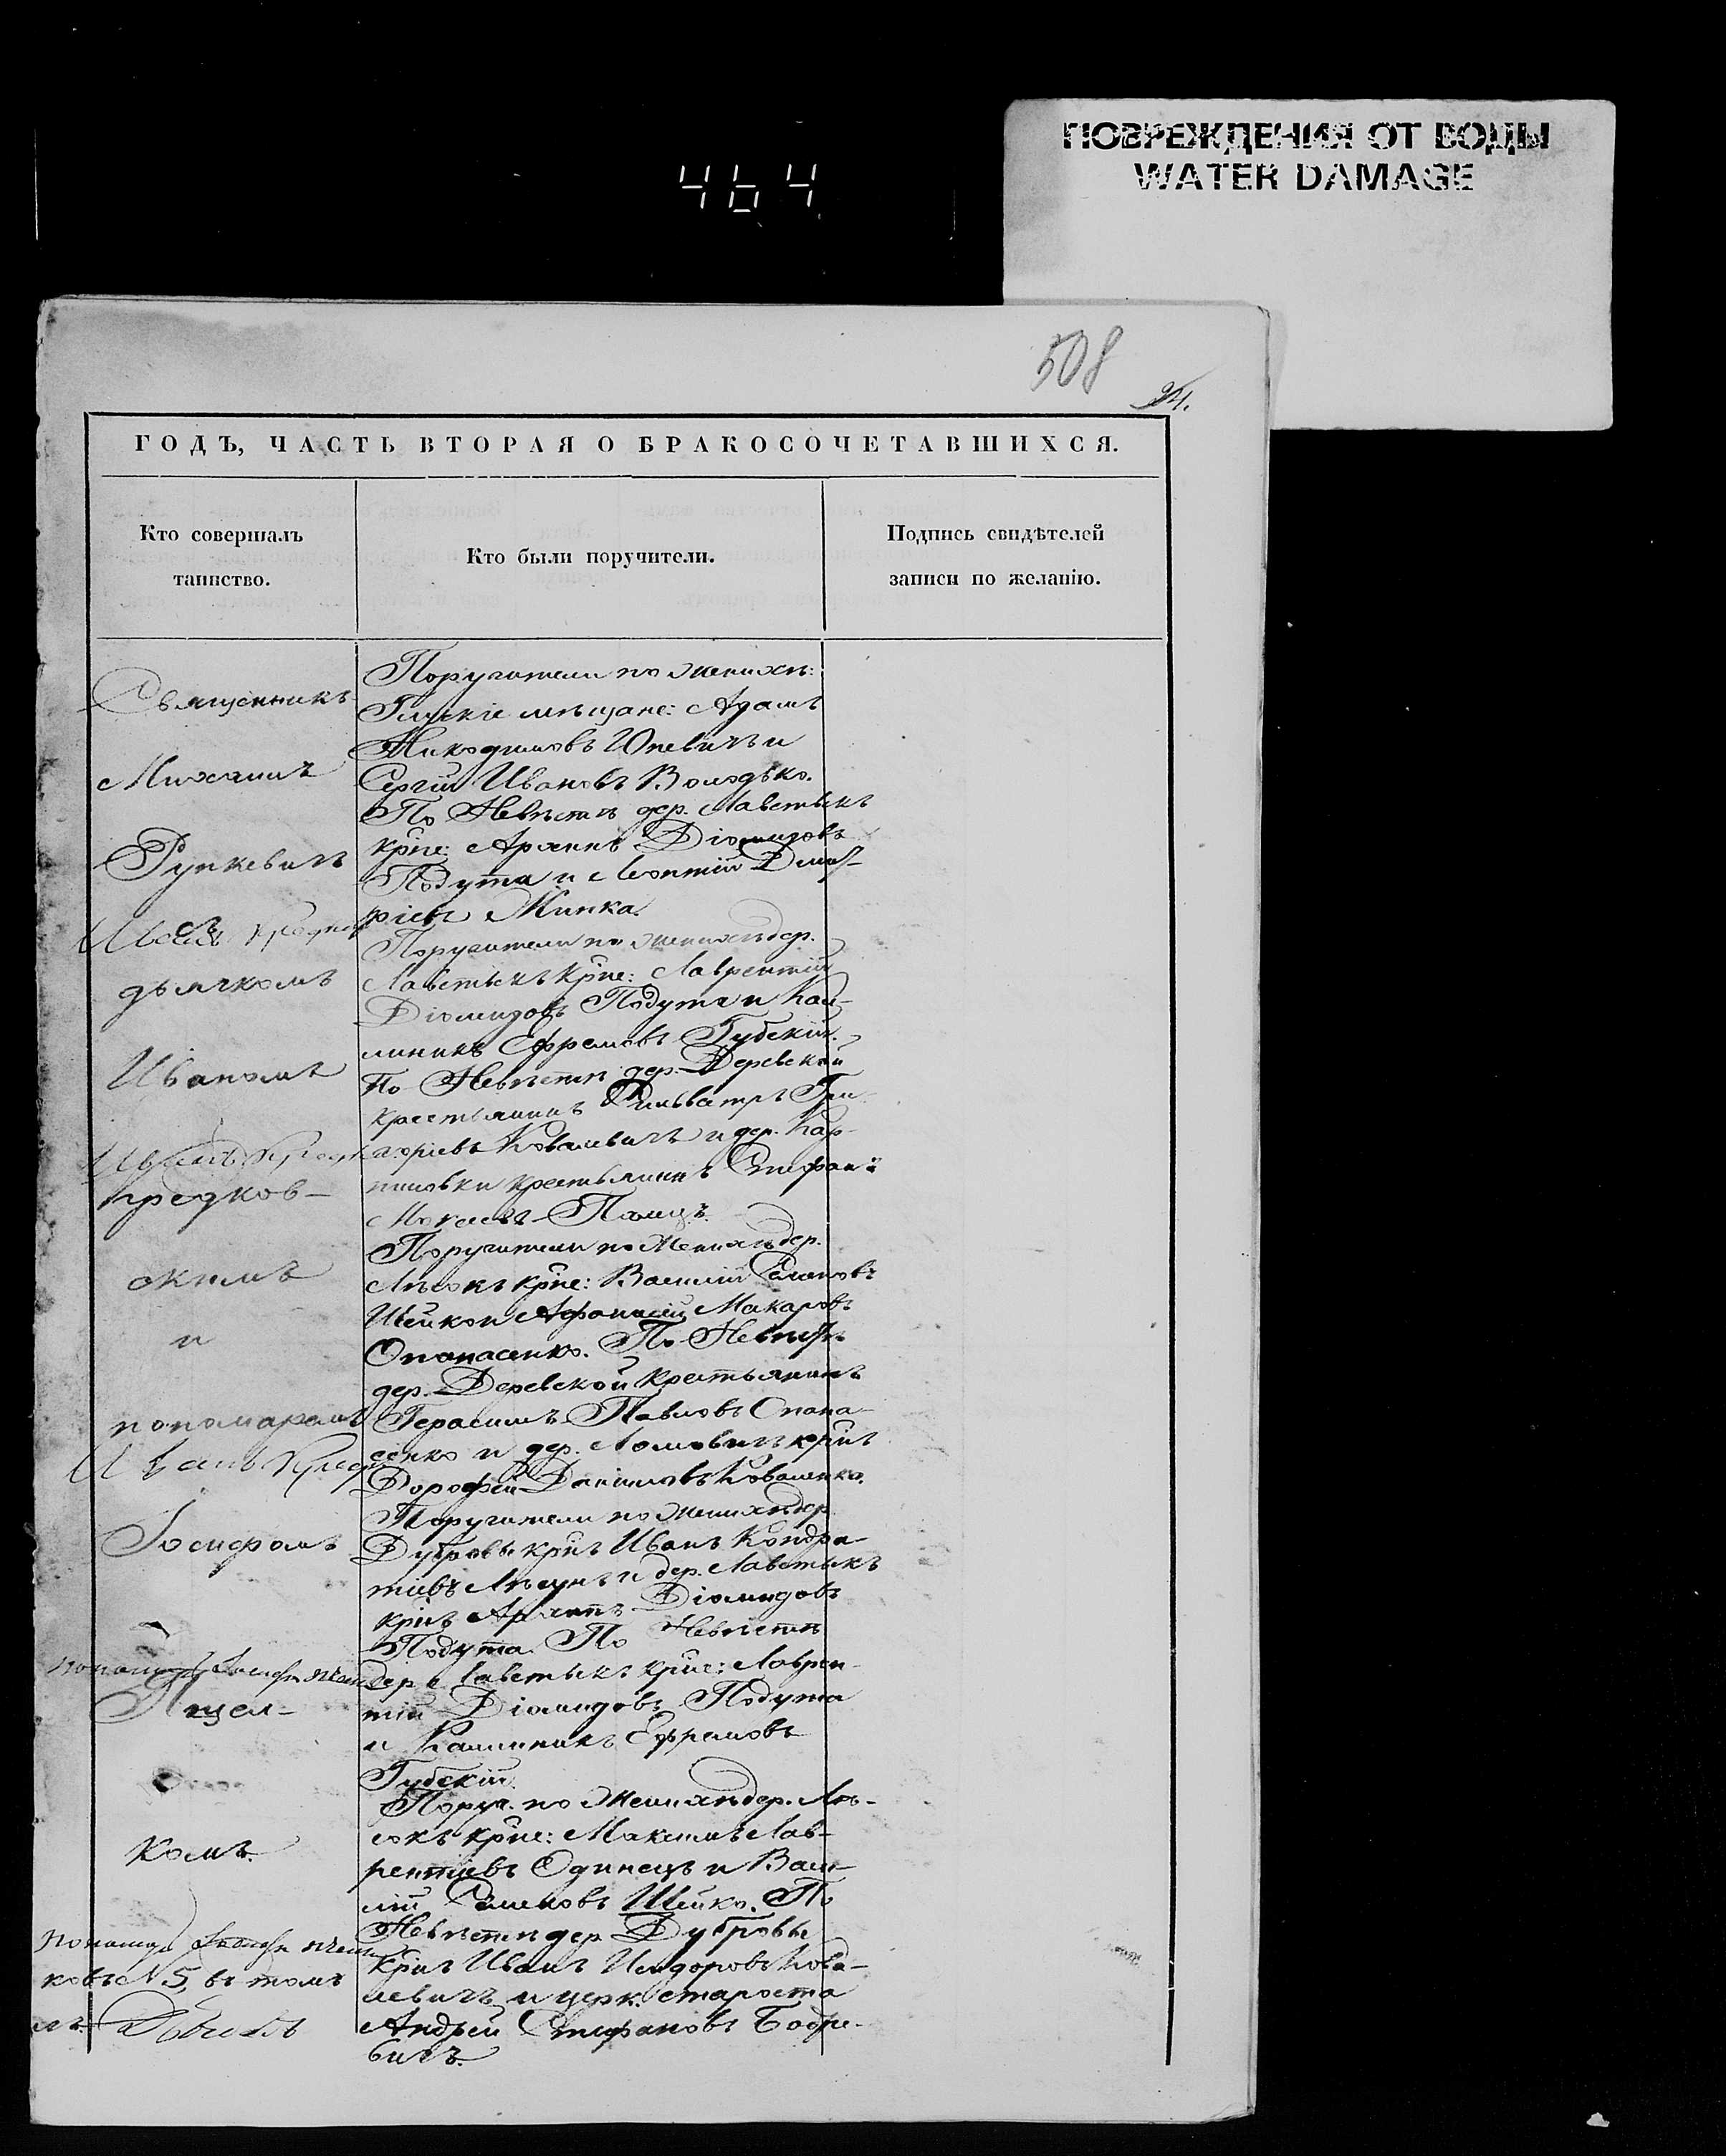 464
ПОВРЕЖДЕНИЯ ОТ ВОДЫ
WATER DAMAGE
508
ГОДЪ, ЧАСТЬ ВТОРАЯ О БРАКОСОЧЕТАВШИХСЯ.
Кто совершалъ
таинство.
Кто были поручители.
Подпись свидѣтелей
записи по желанію.
Священникъ
Михаилъ
Рункевичъ
съ
дьячкомъ
Иваномъ
Кредков-
скимъ
и
пономаремъ
Іосифомъ
Пщел-
комъ.
Поручители по женихѣ:
Глускіе мѣщане: Адамъ
Никодимовъ Юневичъ и
Сергій Ивановъ Володько.
По Невѣстѣ дер. Лавстыкъ
крѣне: Архипъ Діомидовъ
Подута и Леонтій Димит-
ріевъ Минка.
Поручители по женихѣ дер.
Лавстыкъ крѣне: Лаврентій
Діомидовъ Подута и Кал-
линикъ Ефремовъ Губскій.
По Невѣстѣ дер. Деревской
крестьянинъ Сильвестръ Гри-
горіевъ Ковалевичъ и дер. Кар-
пиловки крестьянинъ Стефанъ
Поручители по Женихѣ дер.
Лѣсокъ крѣне: Василій Семеновъ
Шейко и Афанасій Макаровъ
Опанасенко. По Невѣстѣ
дер. Деревской крестьянинъ
Герасимъ Павловъ Опана-
сенко и дер.
Дорофей Даниловъ Коваленко.
Поручители по женихѣ дер.
Дубровы крѣнъ Иванъ Кондра-
тіевъ и дер. Лавстыкъ
крѣнъ Архипъ Діомидовъ
Подута. По Невѣстѣ
дер. Лавстыкъ крѣне: Лаврен-
тій Діомидовъ Подута
и Каллиникъ Ефремовъ
Губскій.
Поруч. по Женихѣ дер. Лѣ-
сокъ крѣне: Максимъ Лав-
рентіевъ Одинецъ и Васи-
лій Семеновъ Шейко. По
Невѣстѣ дер Дубровы
Крѣнъ Иванъ Исидоровъ Кова-
левичъ и церк. староста
Андрей Стефановъ Бодре-
вичъ.